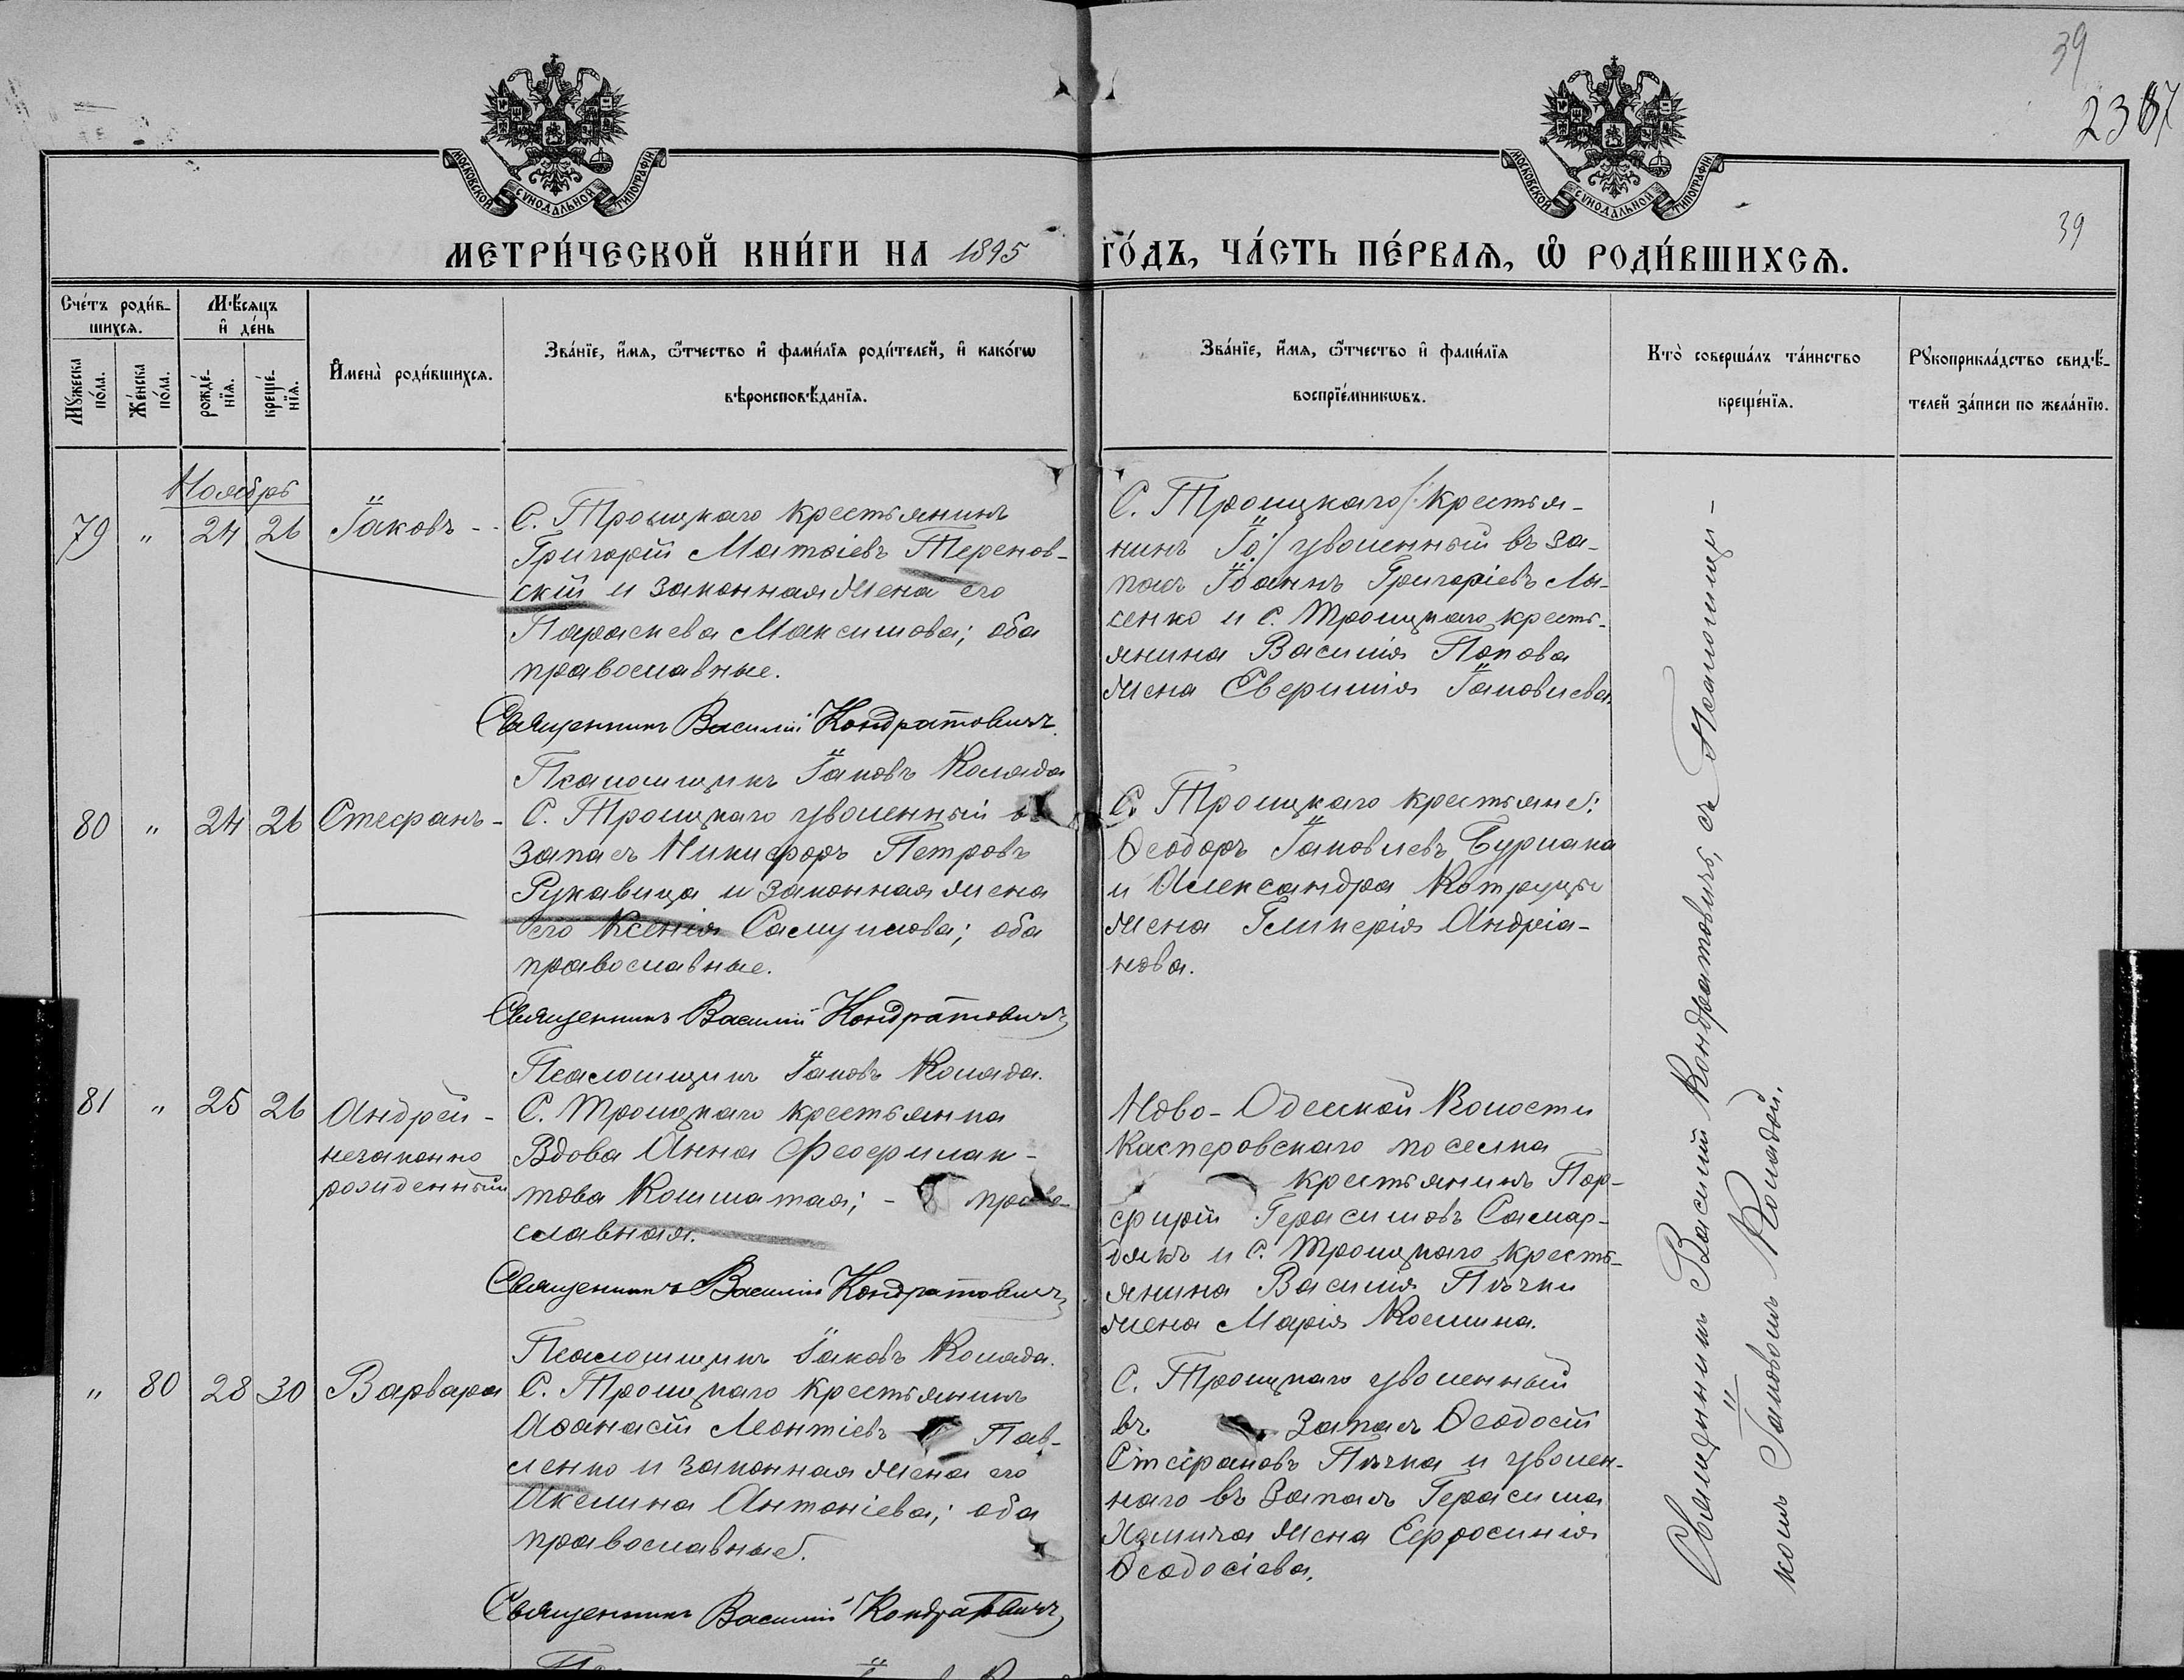 39
2367
39
МОСКОВСКОЙ СѴНОДАЛЬНОЙ ТИПОГРАФІИ
МОСКОВСКОЙ СѴНОДАЛЬНОЙ ТИПОГРАФІИ
МЕТРИ́ЧЕСКОЙ КНИ́ГИ НА 1895 ГО́ДЪ, ЧА́СТЬ ПЕ́РВАѦ, Ѡ҆ РОДИ́ВШИХСѦ.
Сче́тъ роди́в-
шихсѧ.
Мꙋ́жеска по́ла.
Же́нска по́ла.
Мѣ́сѧцъ
и҆ де́нь
рожде́-
нїѧ.
креще́-
нїѧ.
И҆мена̀ роди́вшихсѧ.
Зва́нїе, и҆́мѧ, ѻ҆́тчество и҆ фами́лїѧ роди́телей, и҆ како́гѡ
вѣроисповѣ́данїѧ.
Зва́нїе, и҆́мѧ, ѻ҆́тчество и҆ фами́лїѧ
воспрїе́мникѡвъ.
Кто̀ соверша́лъ та́инство
креще́нїѧ.
Рꙋкоприкла́дство свидѣ́-
телей за́писи по жела́нїю.
Ноябрь
79 " 24 26 Іаковъ -
С. Троицкаго крестьянинъ
Григорій Матѳіевъ Теренов-
скій и законная жена его
Параскева Максимова; оба
православные.
Священникъ Василій Кондратовичъ.
Псаломщикъ Іаковъ Коляда
С. Троицкаго /: крестья-
нинъ Іо :/ уволенный въ за-
пасъ Іоаннъ Григоріевъ Лы-
сенко и С. Троицкаго кресть-
янина Василія Попова
жена Евфимія Іаковлева.
80 " 24 26 Стефанъ -
С. Троицкаго уволенный въ
запасъ Никифоръ Петровъ
Рукавица и законная жена
его Ксенія Самуилова; оба
православные.
Священникъ Василій Кондратовичъ
Псаломщикъ Іаковъ Коляда.
С. Троицкаго крестьяне:
Ѳеодоръ Іаковлевъ Бурлака
и Александра Котруцы
жена Гликерія Андріа-
нова.
81 " 25 26 Андрей -
незаконно
рожденный
С. Троицкаго крестьянка
Вдова Анна Феофилак-
това Кошматая; - право-
славная.
Священникъ Василій Кондратовичъ
Псаломщикъ Іаковъ Коляда.
Ново-Одесской Волости
Касперовскаго поселка
крестьянинъ Пор-
фирій Герасимовъ Самар-
дякъ и С. Троицкаго кресть-
янина Василія Пѣчки
жена Марія Космина.
" 80 28 30 Варвара
С. Троицкаго крестьянинъ
Аѳанасій Леонтіевъ Пав-
ленко и законная жена его
Акелина Антоніева; оба
православные.
Священникъ Василій Кондратовичъ
С. Троицкаго уволенный
въ Запасъ Ѳеодосій
Стефановъ Пѣчка и уволен-
наго въ Запасъ Герасима
жена Евфросинія
Ѳеодосіева.
Священникъ Василій Кондратовичъ, съ Псаломщи-
комъ Іаковомъ Колядой.